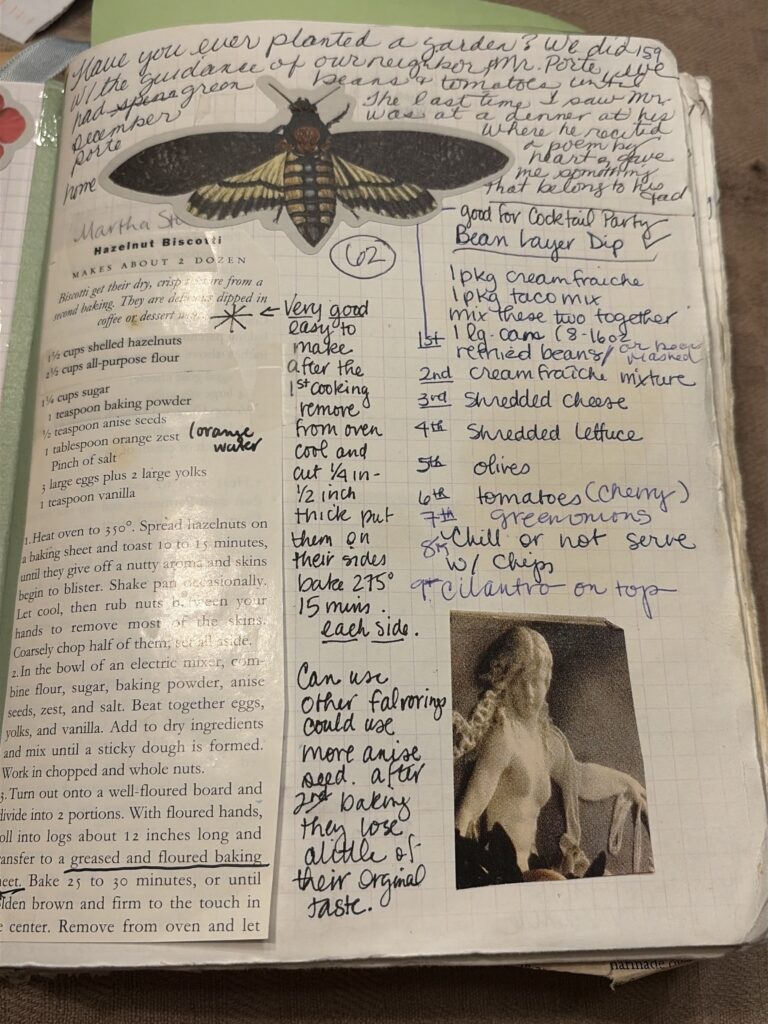 Have you ever planted a garden? We did 159
w/ the guidance of our neighbor Mr. Porte, we
had green beans & tomatoes until
December The last time I saw Mr.
Porte was at a dinner at his
home where he recited
a poem by
heart & gave
me something
that belongs to his
dad
Martha
Hazelnut Biscotti
MAKES ABOUT 2 DOZEN
Biscotti get their dry, crisp texture from a
second baking. They are delicious dipped in
coffee or dessert
1½ cups shelled hazelnuts
2½ cups all-purpose flour
1¼ cups sugar
1 teaspoon baking powder
½ teaspoon anise seeds
1 tablespoon orange zest (orange
water
Pinch of salt
3 large eggs plus 2 large yolks
1 teaspoon vanilla
1. Heat oven to 350°. Spread hazelnuts on
a baking sheet and toast 10 to 15 minutes,
until they give off a nutty aroma and skins
begin to blister. Shake pan occasionally.
Let cool, then rub nuts between your
hands to remove most of the skins.
Coarsely chop half of them; set all aside.
2. In the bowl of an electric mixer, com-
bine flour, sugar, baking powder, anise
seeds, zest, and salt. Beat together eggs,
yolks, and vanilla. Add to dry ingredients
and mix until a sticky dough is formed.
Work in chopped and whole nuts.
3. Turn out onto a well-floured board and
divide into 2 portions. With floured hands,
oll into logs about 12 inches long and
ansfer to a greased and floured baking
heet. Bake 25 to 30 minutes, or until
lden brown and firm to the touch in
center. Remove from oven and let
62
← Very good
easy to
make
after the
1st cooking
remove
from oven
cool and
cut ¼ in-
½ inch
thick put
them on
their sides
bake 275°
15 mins.
each side.
Can use
other falvorings
could use
more anise
seed. after
2nd baking
they lose
alittle of
their orginal
taste.
good for Cocktail Party
Bean Layer Dip ✓
1 pkg creamfraiche
1 pkg taco mix
mix these two together
1st 1 lg. can (8-16oz
refried beans/ or bean
mashed
2nd creamfraiche mixture
3rd Shredded cheese
4th Shredded lettuce
5th olives
6th tomatoes (cherry)
7th greenonions
8th Chill or not serve
w/ chips
9th Cilantro on top